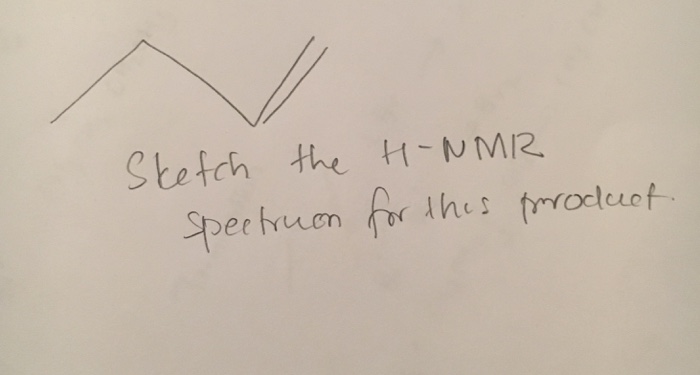 Sketch the H-NMR
spectruon for this product.